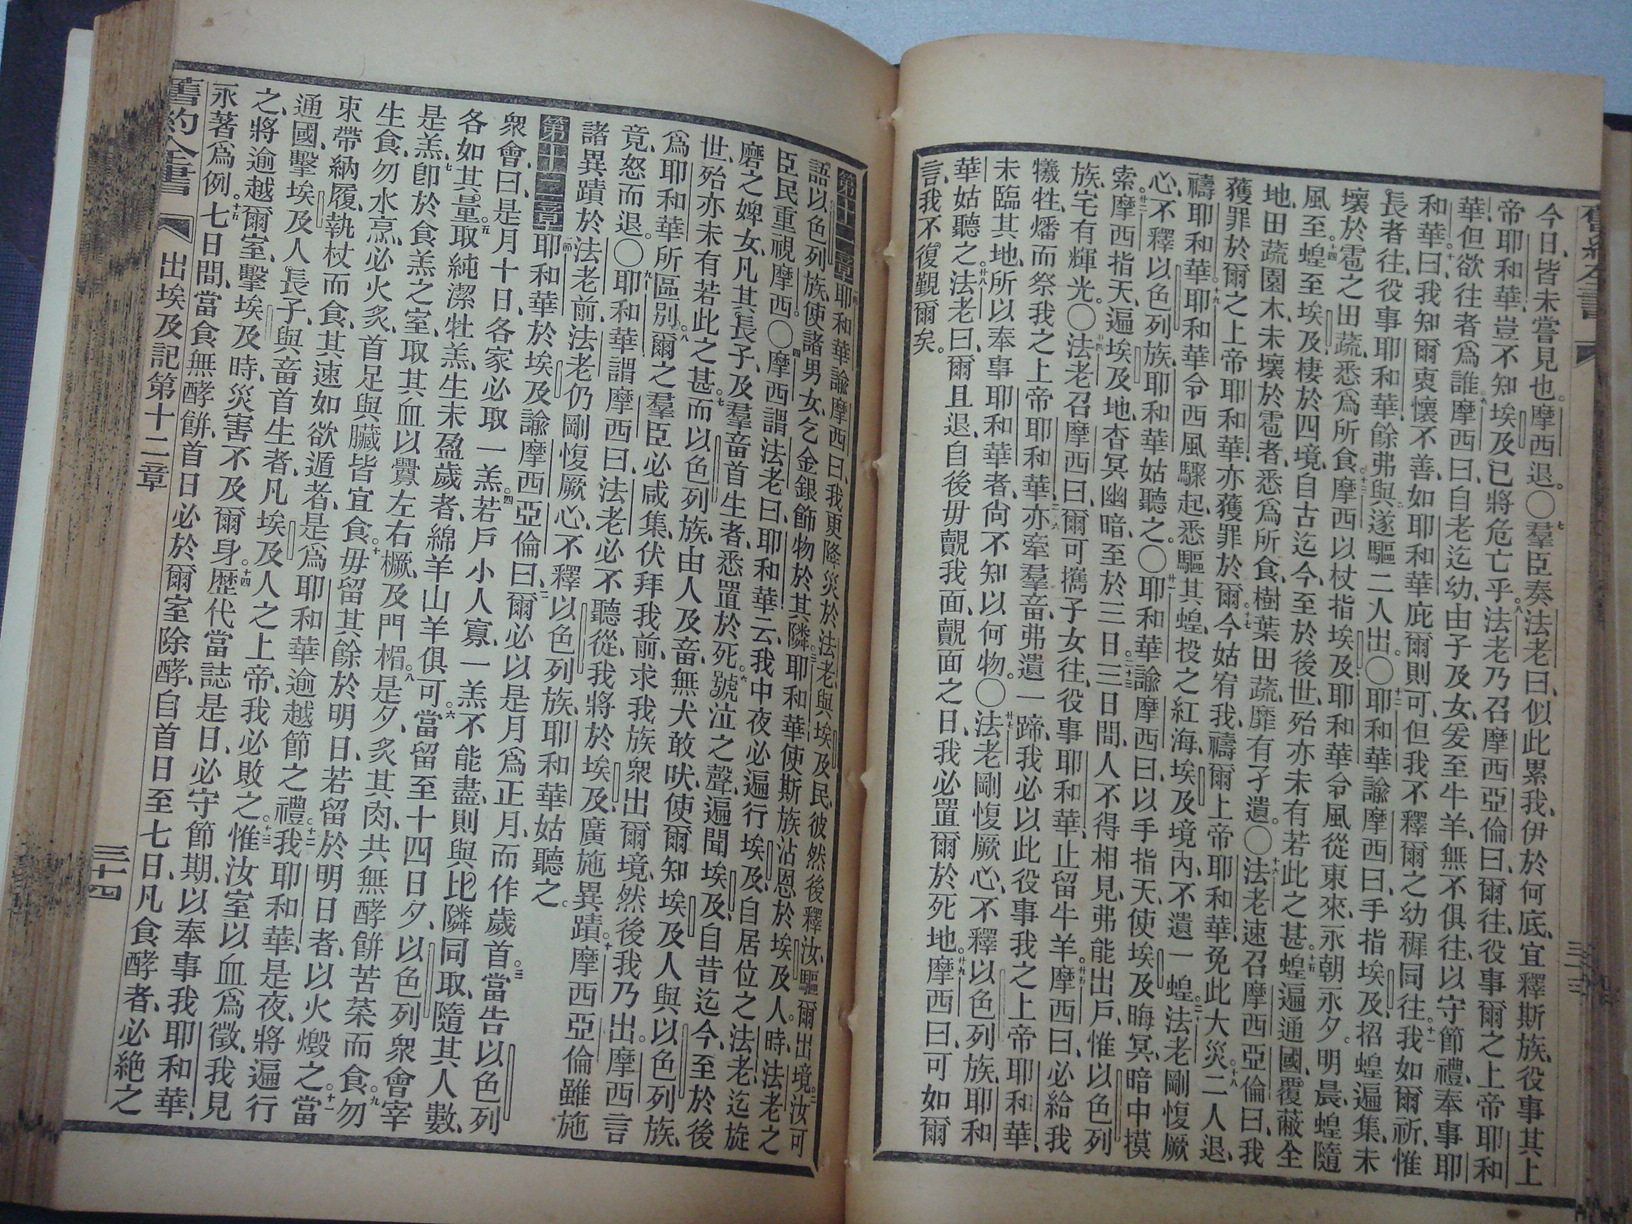 舊約全書
三十三
今日、皆未嘗見也。摩西退。○七羣臣奏法老曰、似此累我、伊於何底、宜釋斯族、役事其上
帝耶和華、豈不知埃及已將危亡乎。八法老乃召摩西亞倫曰、爾往、役事爾之上帝耶和
華、但欲往者爲誰。九摩西曰、自老迄幼、由子及女、爰至牛羊、無不俱往、以守節禮、奉事耶
和華。十曰、我知爾衷懷不善、如耶和華庇爾則可、但我不釋爾之幼穉同往。十一我如爾祈、惟
長者往、役事耶和華、餘弗與、遂驅二人出。○十二耶和華諭摩西曰、手指埃及、招蝗遍集、未
壞於雹之田蔬、悉爲所食。十三摩西以杖指埃及、耶和華令風從東來、永朝永夕。明晨蝗隨
風至。十四蝗至埃及、棲於四境、自古迄今、至於後世、殆亦未有若此之甚。十五蝗遍通國、覆蔽全
地、田蔬園木、未壞於雹者、悉爲所食、樹葉田蔬、靡有孑遺。○十六法老速召摩西亞倫曰、我
獲罪於爾之上帝耶和華、亦獲罪於爾。十七今姑宥我、禱爾上帝耶和華、免此大災。十八二人退、
禱耶和華。十九耶和華令西風驟起、悉驅其蝗、投之紅海、埃及境內、不遺一蝗。二十法老剛愎厥
心、不釋以色列族、耶和華姑聽之。○廿一耶和華諭摩西曰、以手指天、使埃及晦冥、暗中摸
索。廿二摩西指天、遍埃及地、杳冥幽暗、至於三日。二十三三日間、人不得相見、弗能出戶、惟以色列
族、宅有輝光。○廿四法老召摩西曰、爾可攜子女往、役事耶和華、止留牛羊。廿五摩西曰、必給我
犧牲、燔而祭我之上帝耶和華。二十六亦牽羣畜、弗遺一蹄、我必以此役事我之上帝耶和華、
未臨其地、所以奉事耶和華者、尙不知以何物。○廿七法老剛愎厥心、不釋以色列族、耶和
華姑聽之。廿八法老曰、爾且退、自後毋覿我面、覿面之日、我必置爾於死地。廿九摩西曰、可如爾
言、我不復覲爾矣。
第十一章 一節耶和華諭摩西曰、我更降災於法老、與埃及民、彼然後釋汝、驅爾出境。二汝可
語以色列族、使諸男女、乞金銀飾物於其隣。三耶和華使斯族沾恩於埃及人、時法老之
臣民重視摩西。○四摩西謂法老曰、耶和華云、我中夜必遍行埃及。五自居位之法老、迄旋
磨之婢女、凡其長子、及羣畜首生者、悉置於死。六號泣之聲、遍聞埃及、自昔迄今、至於後
世、殆亦未有若此之甚。七而以色列族、由人及畜、無犬敢吠、使爾知埃及人與以色列族、
爲耶和華所區別。八爾之羣臣、必咸集、伏拜我前、求我族衆出爾境、然後我乃出。摩西言
竟、怒而退。○九耶和華謂摩西曰、法老必不聽從、我將於埃及廣施異蹟。十摩西亞倫雖施
諸異蹟於法老前、法老仍剛愎厥心、不釋以色列族、耶和華姑聽之。
第十二章 一節耶和華於埃及諭摩西亞倫曰、二爾必以是月、爲正月、而作歲首。三當告以色列
衆會曰、是月十日、各家必取一羔。四若戶小人寡、一羔不能盡、則與比隣同取、隨其人數、
各如其量。五取純潔牡羔、生未盈歲者、綿羊山羊俱可。六當留至十四日夕、以色列衆會宰
是羔、七卽於食羔之室、取其血以釁左右橛、及門楣。八是夕、炙其肉、共無酵餅苦菜而食。九勿
生食、勿水烹、必火炙、首足與臟皆宜食。十毋留其餘於明日、若留於明日者、以火燬之。十一當
束帶納履、執杖而食、其速如欲遁者、是爲耶和華逾越節之禮。十二我耶和華、是夜將遍行
通國、擊埃及人長子、與畜首生者、凡埃及人之上帝、我必敗之。十三惟汝室以血爲徵、我見
之、將逾越爾室、擊埃及時、災害不及爾身。十四歷代當誌是日、必守節期、以奉事我耶和華、
永著爲例。十五七日間、當食無酵餅、首日必於爾室除酵、自首日至七日、凡食酵者、必絕之
舊約全書 出埃及記第十二章 三十四